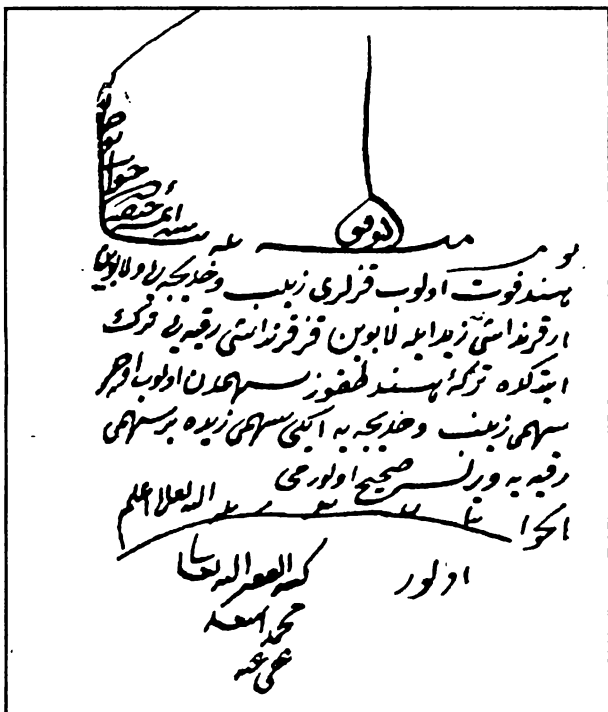 توفيق
بو مسئله
هند فوت اولوب قزلرى زينب و خديجه يى و لابوين
ار قرنداشى زيد ايله لابوين قز قرنداشى رقيه يى ترك
ايتدكده تركۀ هند طقوز سهمدن اولوب اوچر
سهمى زينب و خديجه يه ايكى سهمى زيده بر سهمى
رقيه يه ويرلسه صحيح اولورمى
الجواب الله تعالى اعلم
اولور
كتبه الفقير اليه تعالى
محمد اسعد
عفى عنه